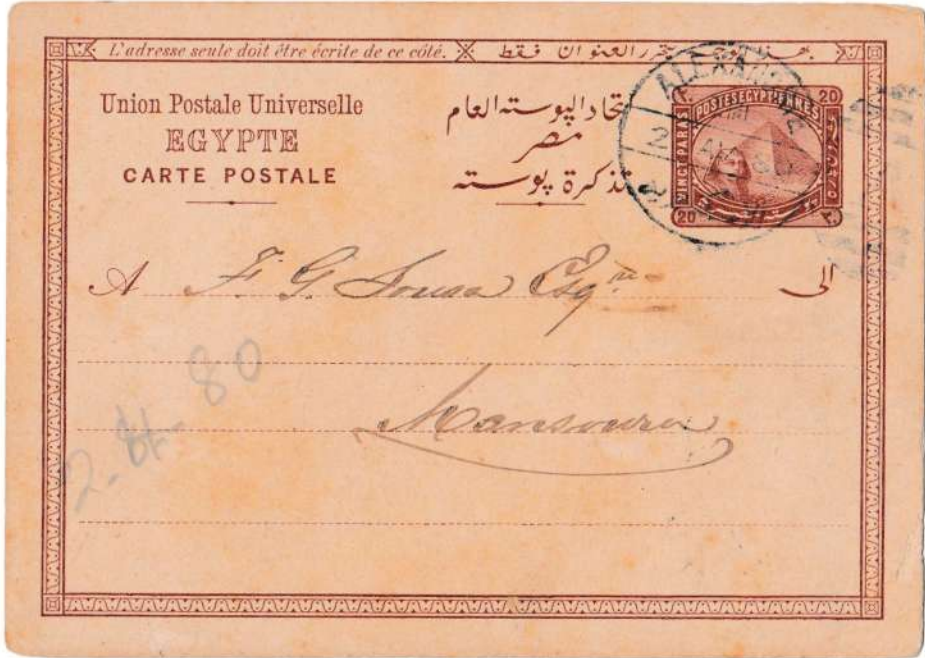 L'adresse seule doit être écrite de ce côté.
العنوان فقط
Union Postale Universelle
EGYPTE
CARTE POSTALE
اتحاد البوسته العام
مصر
تذكرة بوسته
20 POSTES EGYPTIENNES 20
VINGT PARAS
20 ٢٠
ALEXANDRIE
A F. G. Sousa Esq.re الى
Mansoura
2-4-80